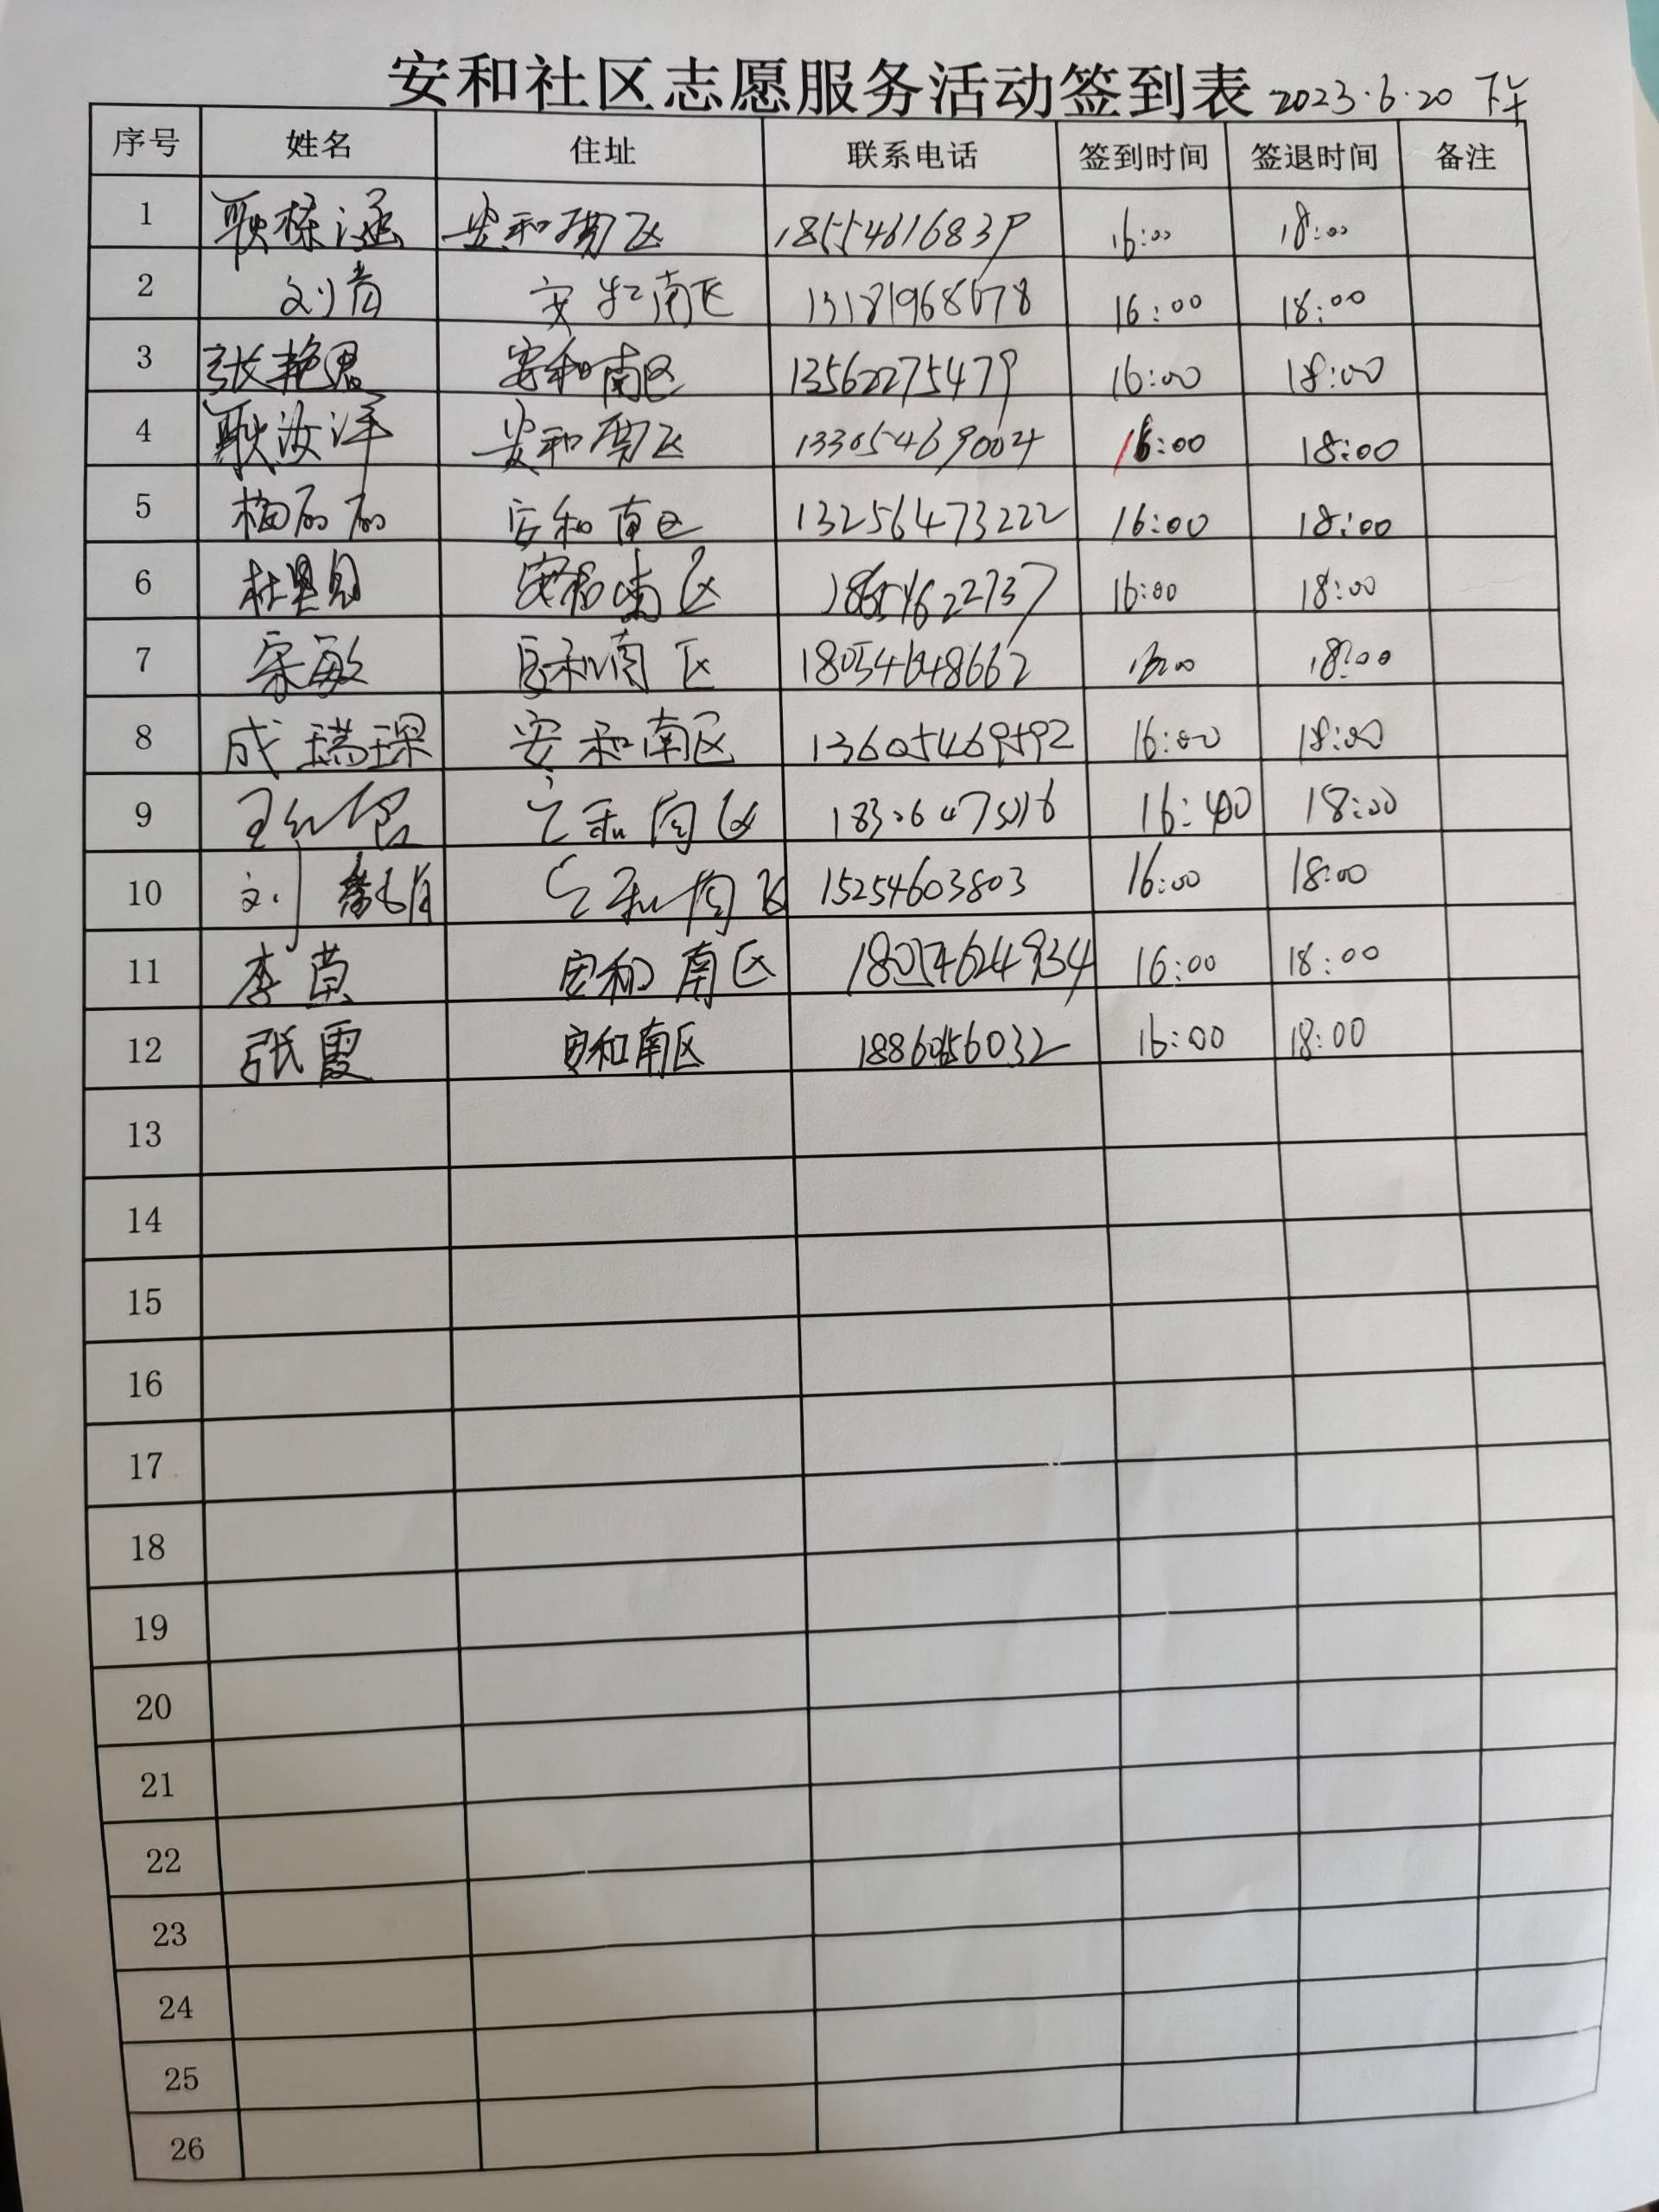 安和社区志愿服务活动签到表 2023.6.20 下午
序号 姓名 住址 联系电话 签到时间 签退时间 备注
1 耿栋涵 安和南区 18554616839 16:00 18:00
2 刘青 安和南区 13181968678 16:00 18:00
3 张艳恩 安和南区 13562275479 16:00 18:00
4 耿汝洋 安和南区 13305469004 16:00 18:00
5 梅丽丽 安和南区 13256473222 16:00 18:00
6 安和南区 18654622737 16:00 18:00
7 宋敏 安和南区 18054648662 18:00
8 成瑞琛 安和南区 13605469592 16:00 18:00
9 安和南区 16:00 18:00
10 刘 安和南区 15254603803 16:00 18:00
11 李萸 安和南区 18054624934 16:00 18:00
12 张霞 安和南区 16:00 18:00
13
14
15
16
17
18
19
20
21
22
23
24
25
26